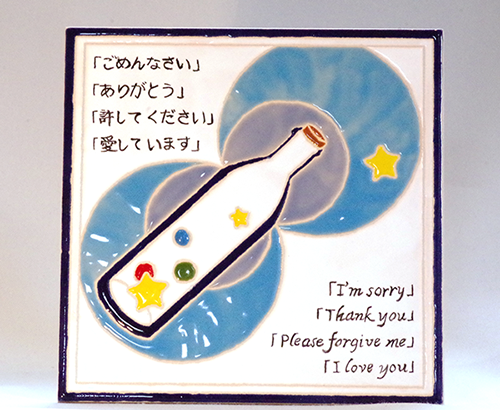 「ごめんなさい」
「ありがとう」
「許してください」
「愛しています」
「I'm sorry」
「Thank you」
「Please forgive me」
「I love you」